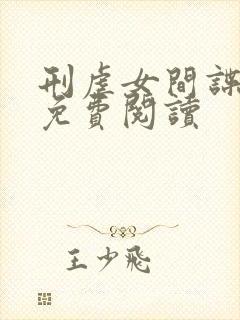 刑虐女間諜
免費閱讀
王少飛